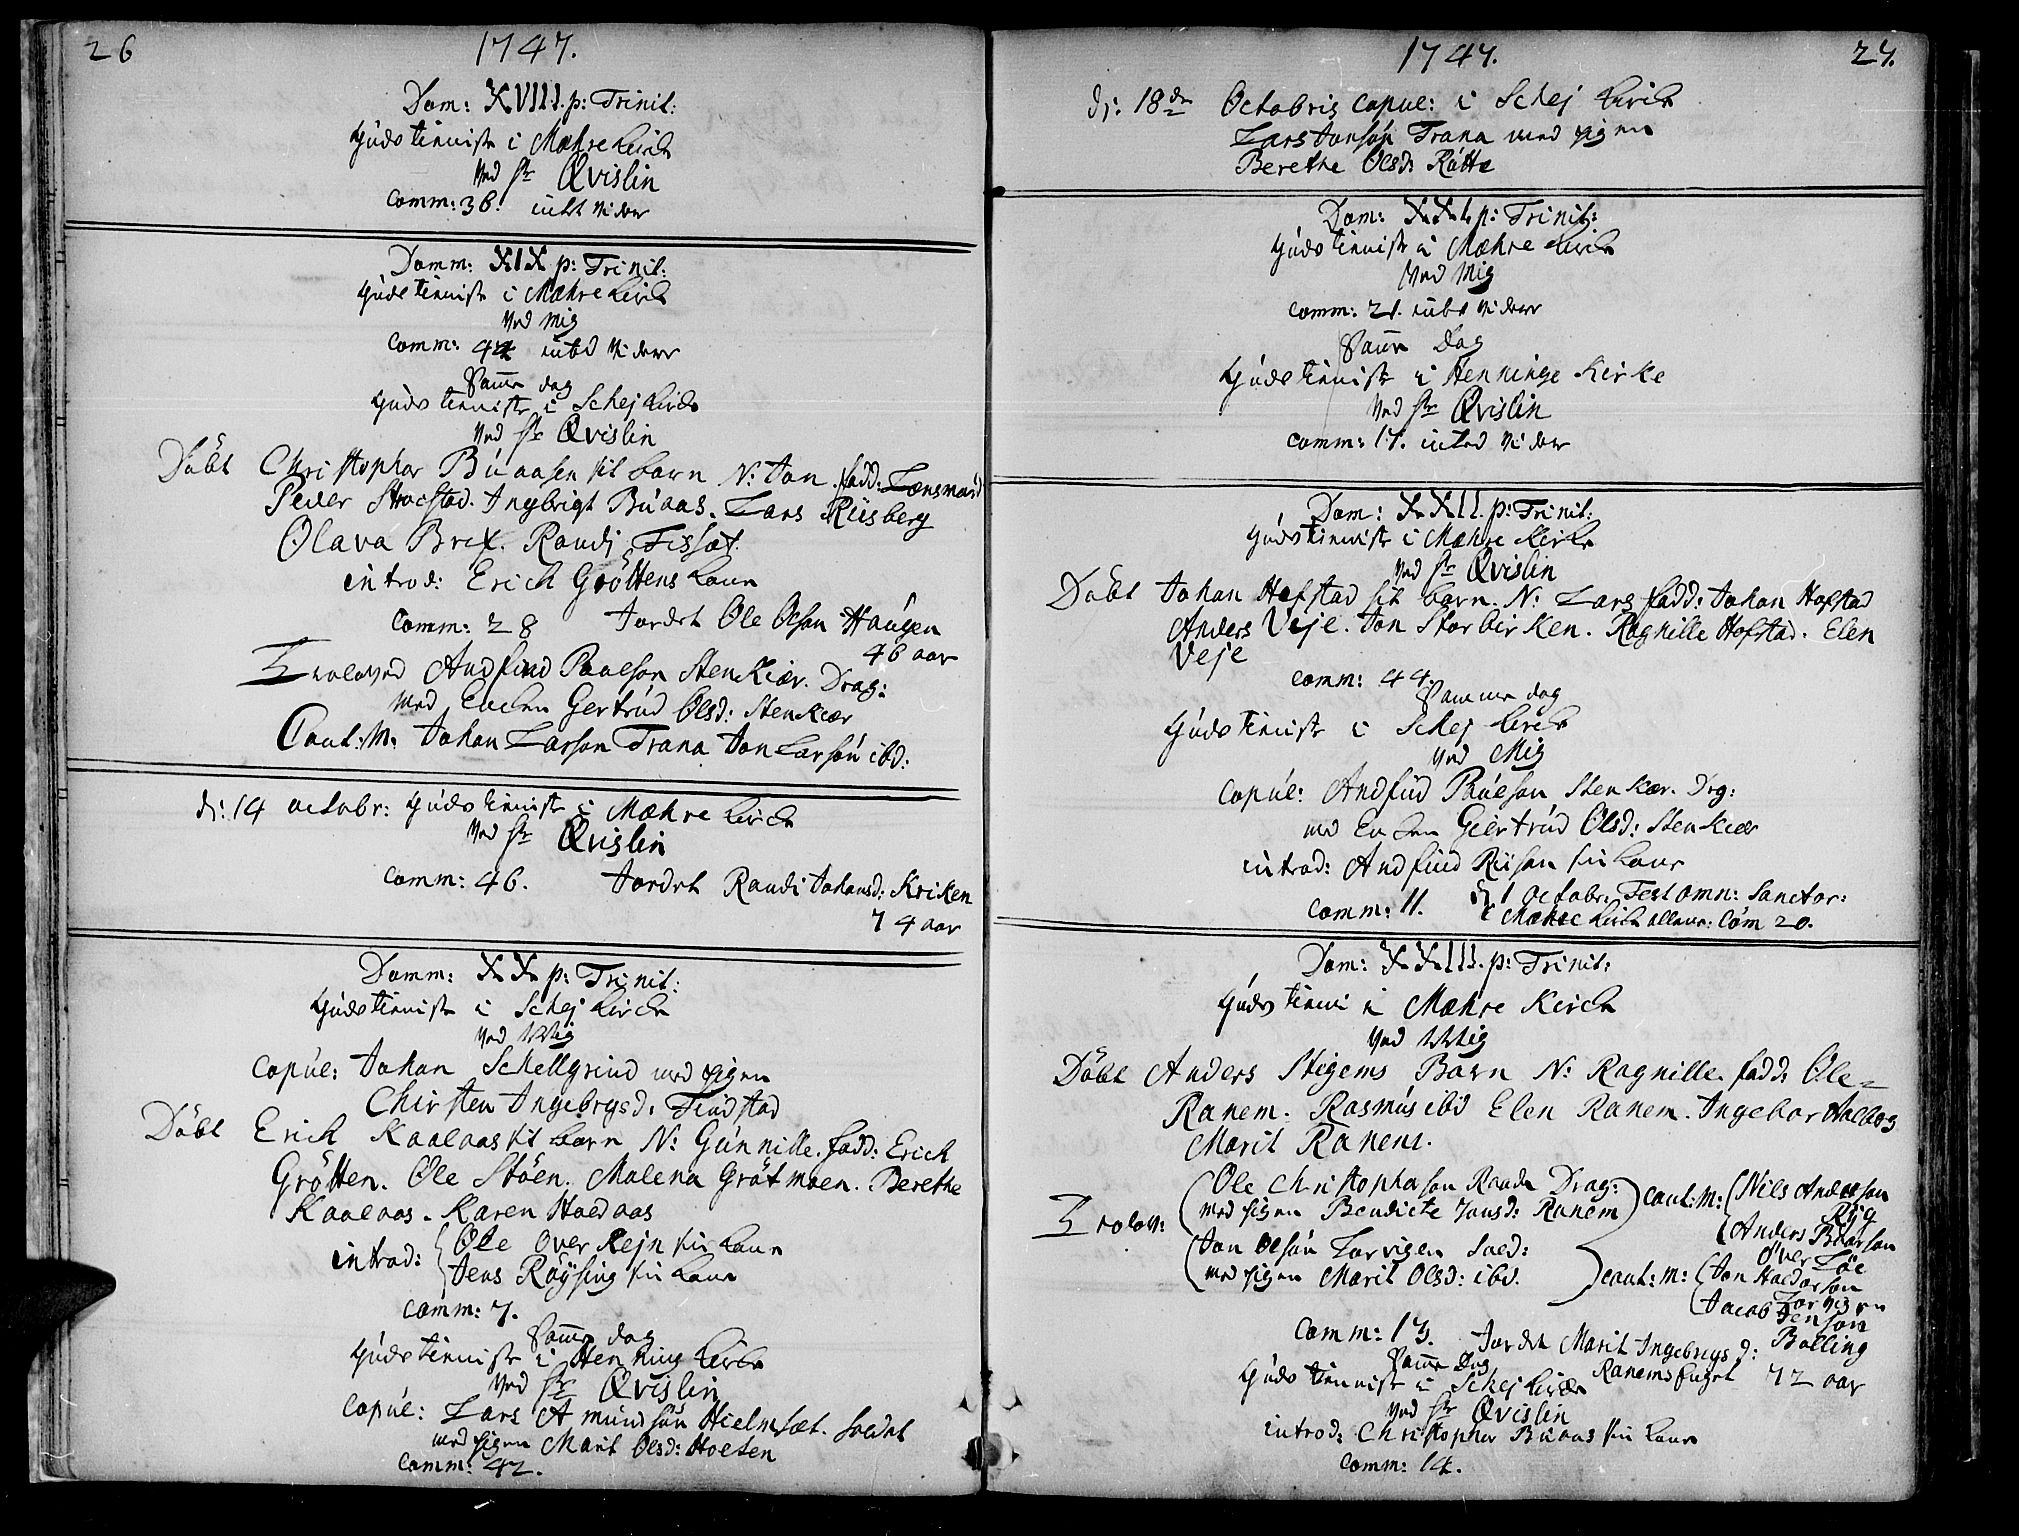 26
1747.
Dom: XVIII. p: Trinit:
Guds tienniste i Mæhre Kirch
ved Hr Qvislin
Comm: 36. intet videre
Domm: XIX p: Trinit:
Guds tienniste i Mæhre Kirch
ved mig
Comm: 44 intet videre
Samme dag
Guds tienniste i Schej Kirch
ved Hr Qvislin
Döbt Christopher Búaasen sit barn N: Jon. fadd: Lænsmand
Peder Strocstad. Ingbrigt Búaas. Lars Riisberg
Olava Brix. Randj Fissæt.
introd: Erich Gröttens Kone
Comm: 28 Jordet Ole Olson Haúgen
46 aar
Troloved Andfind Paulson Stenkiær. Drag:
med Enchen Gertrúd Olsd: Stenkiær
Caut: M: Johan Larson Trana Jon Larsón ibd:
d: 14 octobr: Guds tienniste i Mæhre Kirch
ved Hr Qvislin
Comm: 46. Jordet Randi Johansd: Kriken
74 aar
Domm: XX p: Trinit:
Guds tienniste i Schej Kirch
ved Mig
Copúl: Johan Schellgrind med pigen
Chirsten Ingebrigsd: Findstad
Döbt Erich Kaalaas sit barn N: Gúnnille. fadd: Erich
Grötten. Ole Stöen. Malena Grötmoen. Berethe
Kaalaas. Karen Haldaas
introd: Ole Over Rejn sin Kone
Jens Röysing sin Kone
Comm: 7.
Samme dag
Guds tienniste i Henning Kirch
ved Hr Qvislin
Copúl: Lars Amúndsón Hielmsæt. Soldat
med pigen Marit Olsd: Holten
Comm: 42.
1747.
27.
d: 18de Octobris Copul: i Schej Kirch
Lars Jonsön Trana med pigen
Berethe Olsd: Rótte
Dom: XXI. p: Trinit:
Guds tienniste i Mæhre Kirch
ved Mig
Comm: 21. intet videre
Samme Dag
Guds tienniste i Henninge Kirke
ved Hr Qvislin
Comm: 17. intet videre
Dom: XXII. p: Trinit:
Guds tienniste i Mæhre Kirke
ved Hr Qvislin
Döbt Johan Hofstad sit barn. N: Lars fadd: Johan Hofstad
Anders Veje. Jon Storbirken. Ragnille Hofstad. Elen
Veje
Comm: 44.
Samme dag
Guds tienniste i Schej Kirch
ved Mig
Copúl: Andfind Paúlson Stenkær. Drg:
med Enchen Geirtrúd Olsd: Stenkiær
introd: Andfind Riison sin Kone
Comm: 11. d: 1 octobr: Fest omn: Sanctor:
i Mæhre Kirch allene: Com 20.
Dom: XXIII. p: Trinit:
Guds tienni i Mæhre Kirch
ved Mig
Döbt Anders Stigems Barn N: Ragnille. fadd: Ole
Ranem. Rasmús ibid Elen Ranem. Ingebor Aalbog
Marit Ranem.
Trolov: Ole Christopherson Drag: caut: m: Nils Anderson
med pigen Bendicte Jonsd: Ranem Ryg
Anders Boarson
Jon Olsón Lorvigen Sold: Over Löe
med pigen Marit Olsd: ibd. caut: m: Jon Haldorson
Lorvigen
Jacob Jenson
Comm: 13. Jordet Marit Ingebrigsd: Bolling
Samme Dag Ranems 72 aar
Guds tienniste i Schej Kirche
ved Hr Qvislin
introd: Christopher Búaas sin Kone
Comm: 14.